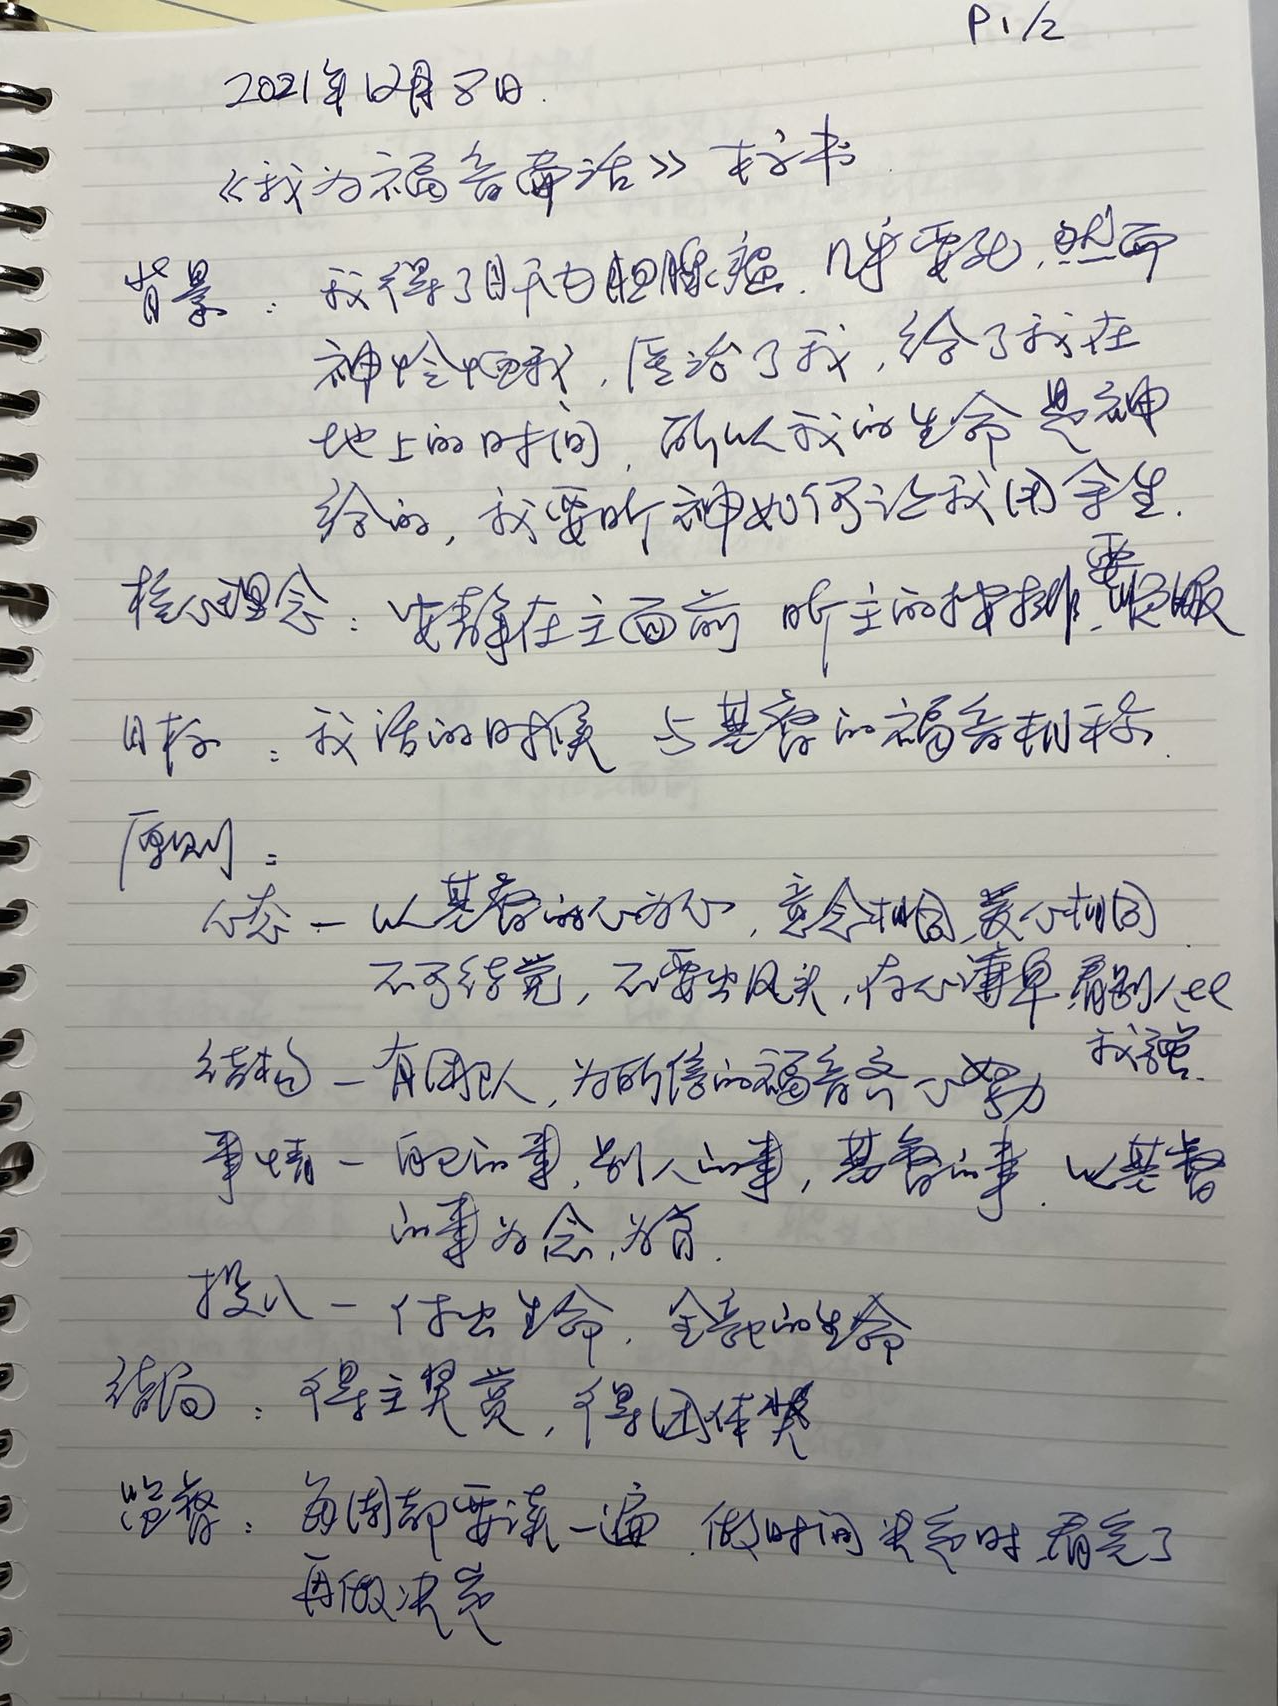 P1/2
2021年12月8日.
《我为福音而活》计划书
背景：我得了肝内胆腺癌.几乎要死,然而
神怜悯我,医治了我,给了我在
地上的时间,所以我的生命是神
给的,我要听神如何让我用余生.
核心理念：安静在主面前 听主的安排,要顺服
目标：我活的时候 与基督的福音相称.
原则：
心态－以基督的心为心,意念相同,爱心相同.
不可结党,不要出风头,存心谦卑,看别人比
我强.
结构－有团队,为所信的福音齐心努力
事情－自己的事,别人的事,基督的事.以基督
的事为念,为首.
投入－付出生命.全部的生命
结局：得主奖赏,得团体奖
监督：每周都要读一遍.做时间决定时,看完了
再做决定